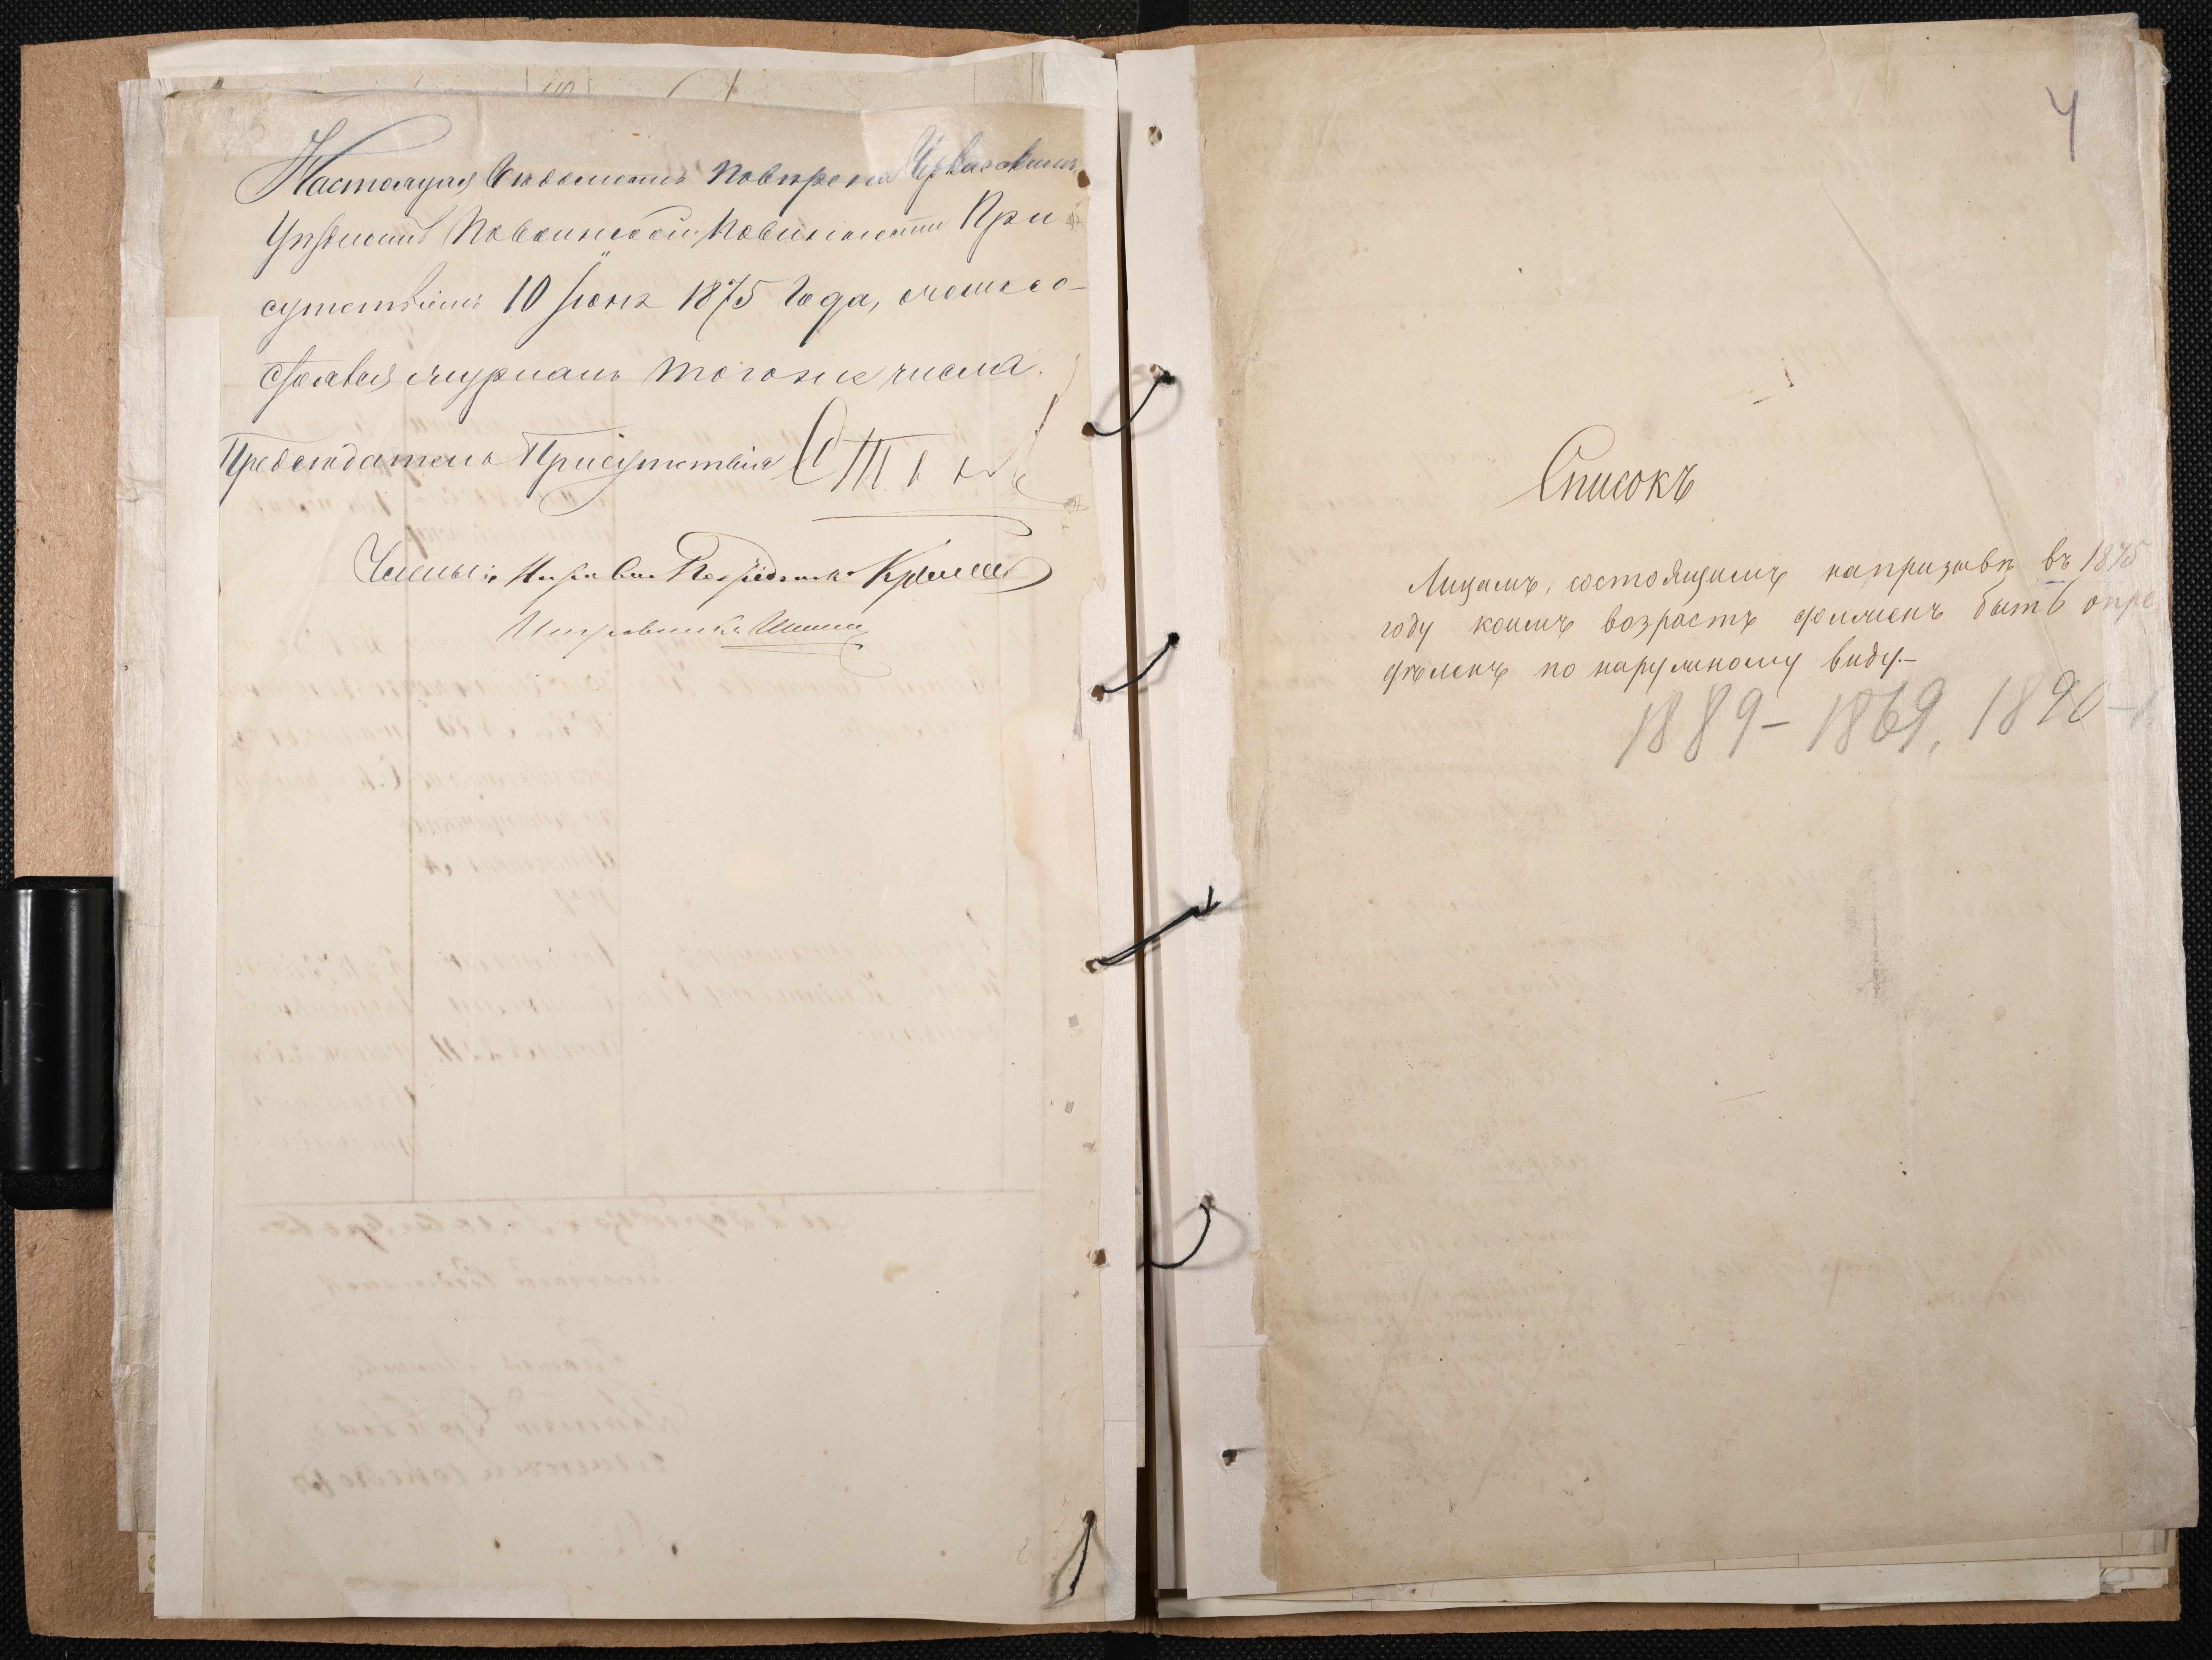 Настоящая вѣдомость повѣрена Черкасскимъ
Уѣзднымъ по воинской повинности При
сутствіемъ 10 Іюня 1875 года, о чемъ со-
ставленъ журналъ того же числа.
Предсѣдатель Присутствія
Члены: Мировой Посредникъ
Исправникъ
4
Списокъ
Лицамъ, состоящимъ на призывѣ въ 1875
году коимъ возрастъ долженъ быть опре
дѣленъ по наружному виду.—
1889-1869, 1890-1